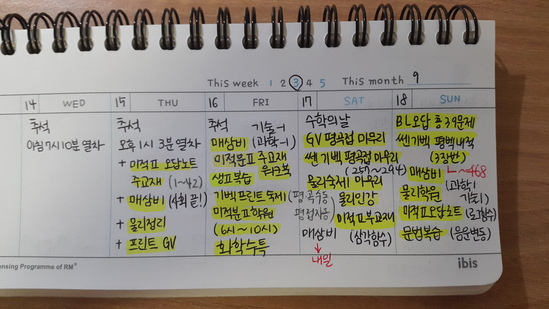 This week 1 2 3 4 5 This month 9
14 WED
추석
아침 7시 10분 열차
15 THU
추석
오후 1시 3분 열차
+ 미적표 오답노트
주교재 (1-42)
+ 매삼비 (4회 끝!)
+ 물리정리
+ 프린트 GV
16 FRI
추석 기술-1
매삼비 (과학-1)
미적분표 주교재
워크북
생표복습
기벡프린트숙제
미적분표학원
(6시~10시)
화학수특
17 SAT
수학의날
GV 평곡접 마무리
쎈 기벡 평곡접 마무리
(257~294)
물리숙제 마무리
물리인강
미적표부교재
(삼각함수)
매삼비
내일
18 SUN
BL오답 총 39문제
쎈 기벡 평벡내적
(3장반)
매삼비 ~468
(과학1
기술1)
물리학원
미적표오답노트 (로그함수)
문법복습 (음운변동)
ensing Programme of RM®
ibis